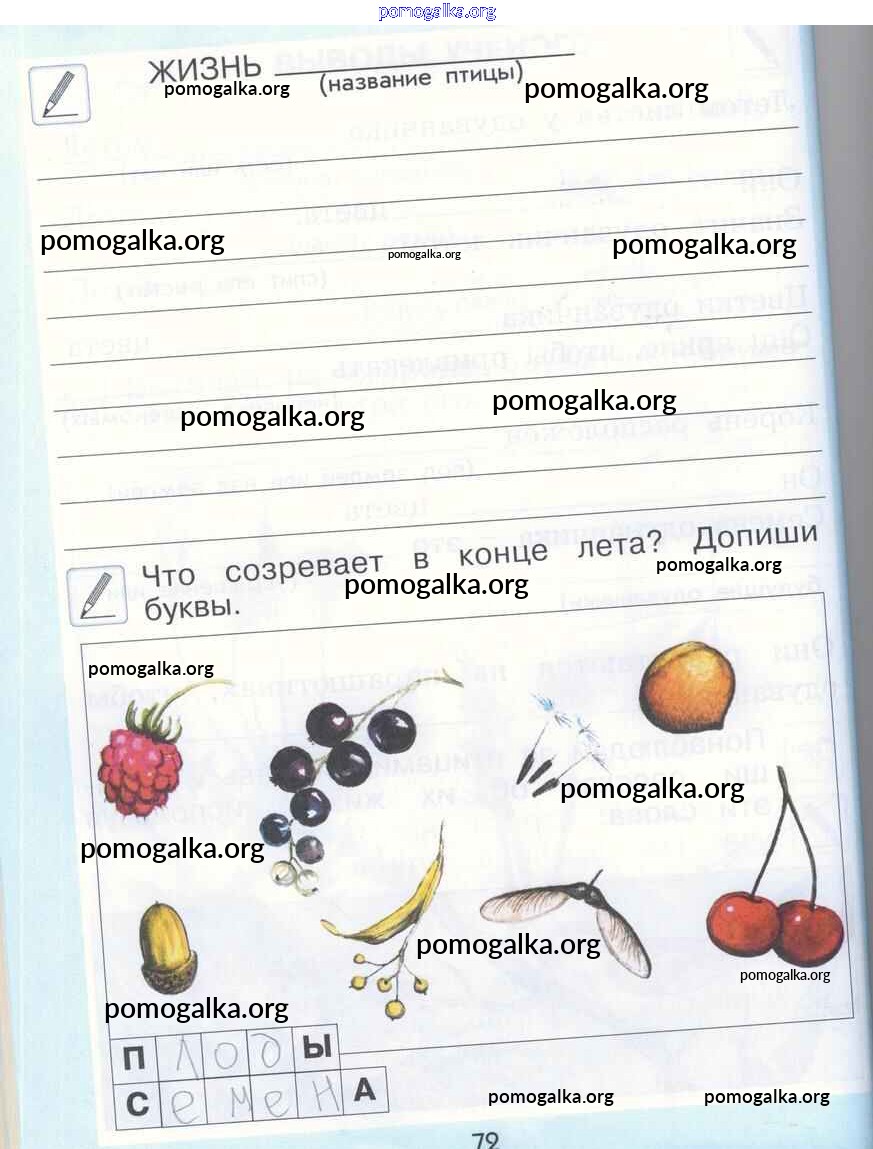 pomogalka.org
ЖИЗНЬ
(название птицы)
pomogalka.org pomogalka.org
pomogalka.org pomogalka.org pomogalka.org
pomogalka.org pomogalka.org
Что созревает в конце лета? Допиши
pomogalka.org pomogalka.org
буквы.
pomogalka.org
pomogalka.org
pomogalka.org
pomogalka.org
pomogalka.org
pomogalka.org
ПлодЫ
СеменА
pomogalka.org pomogalka.org
72